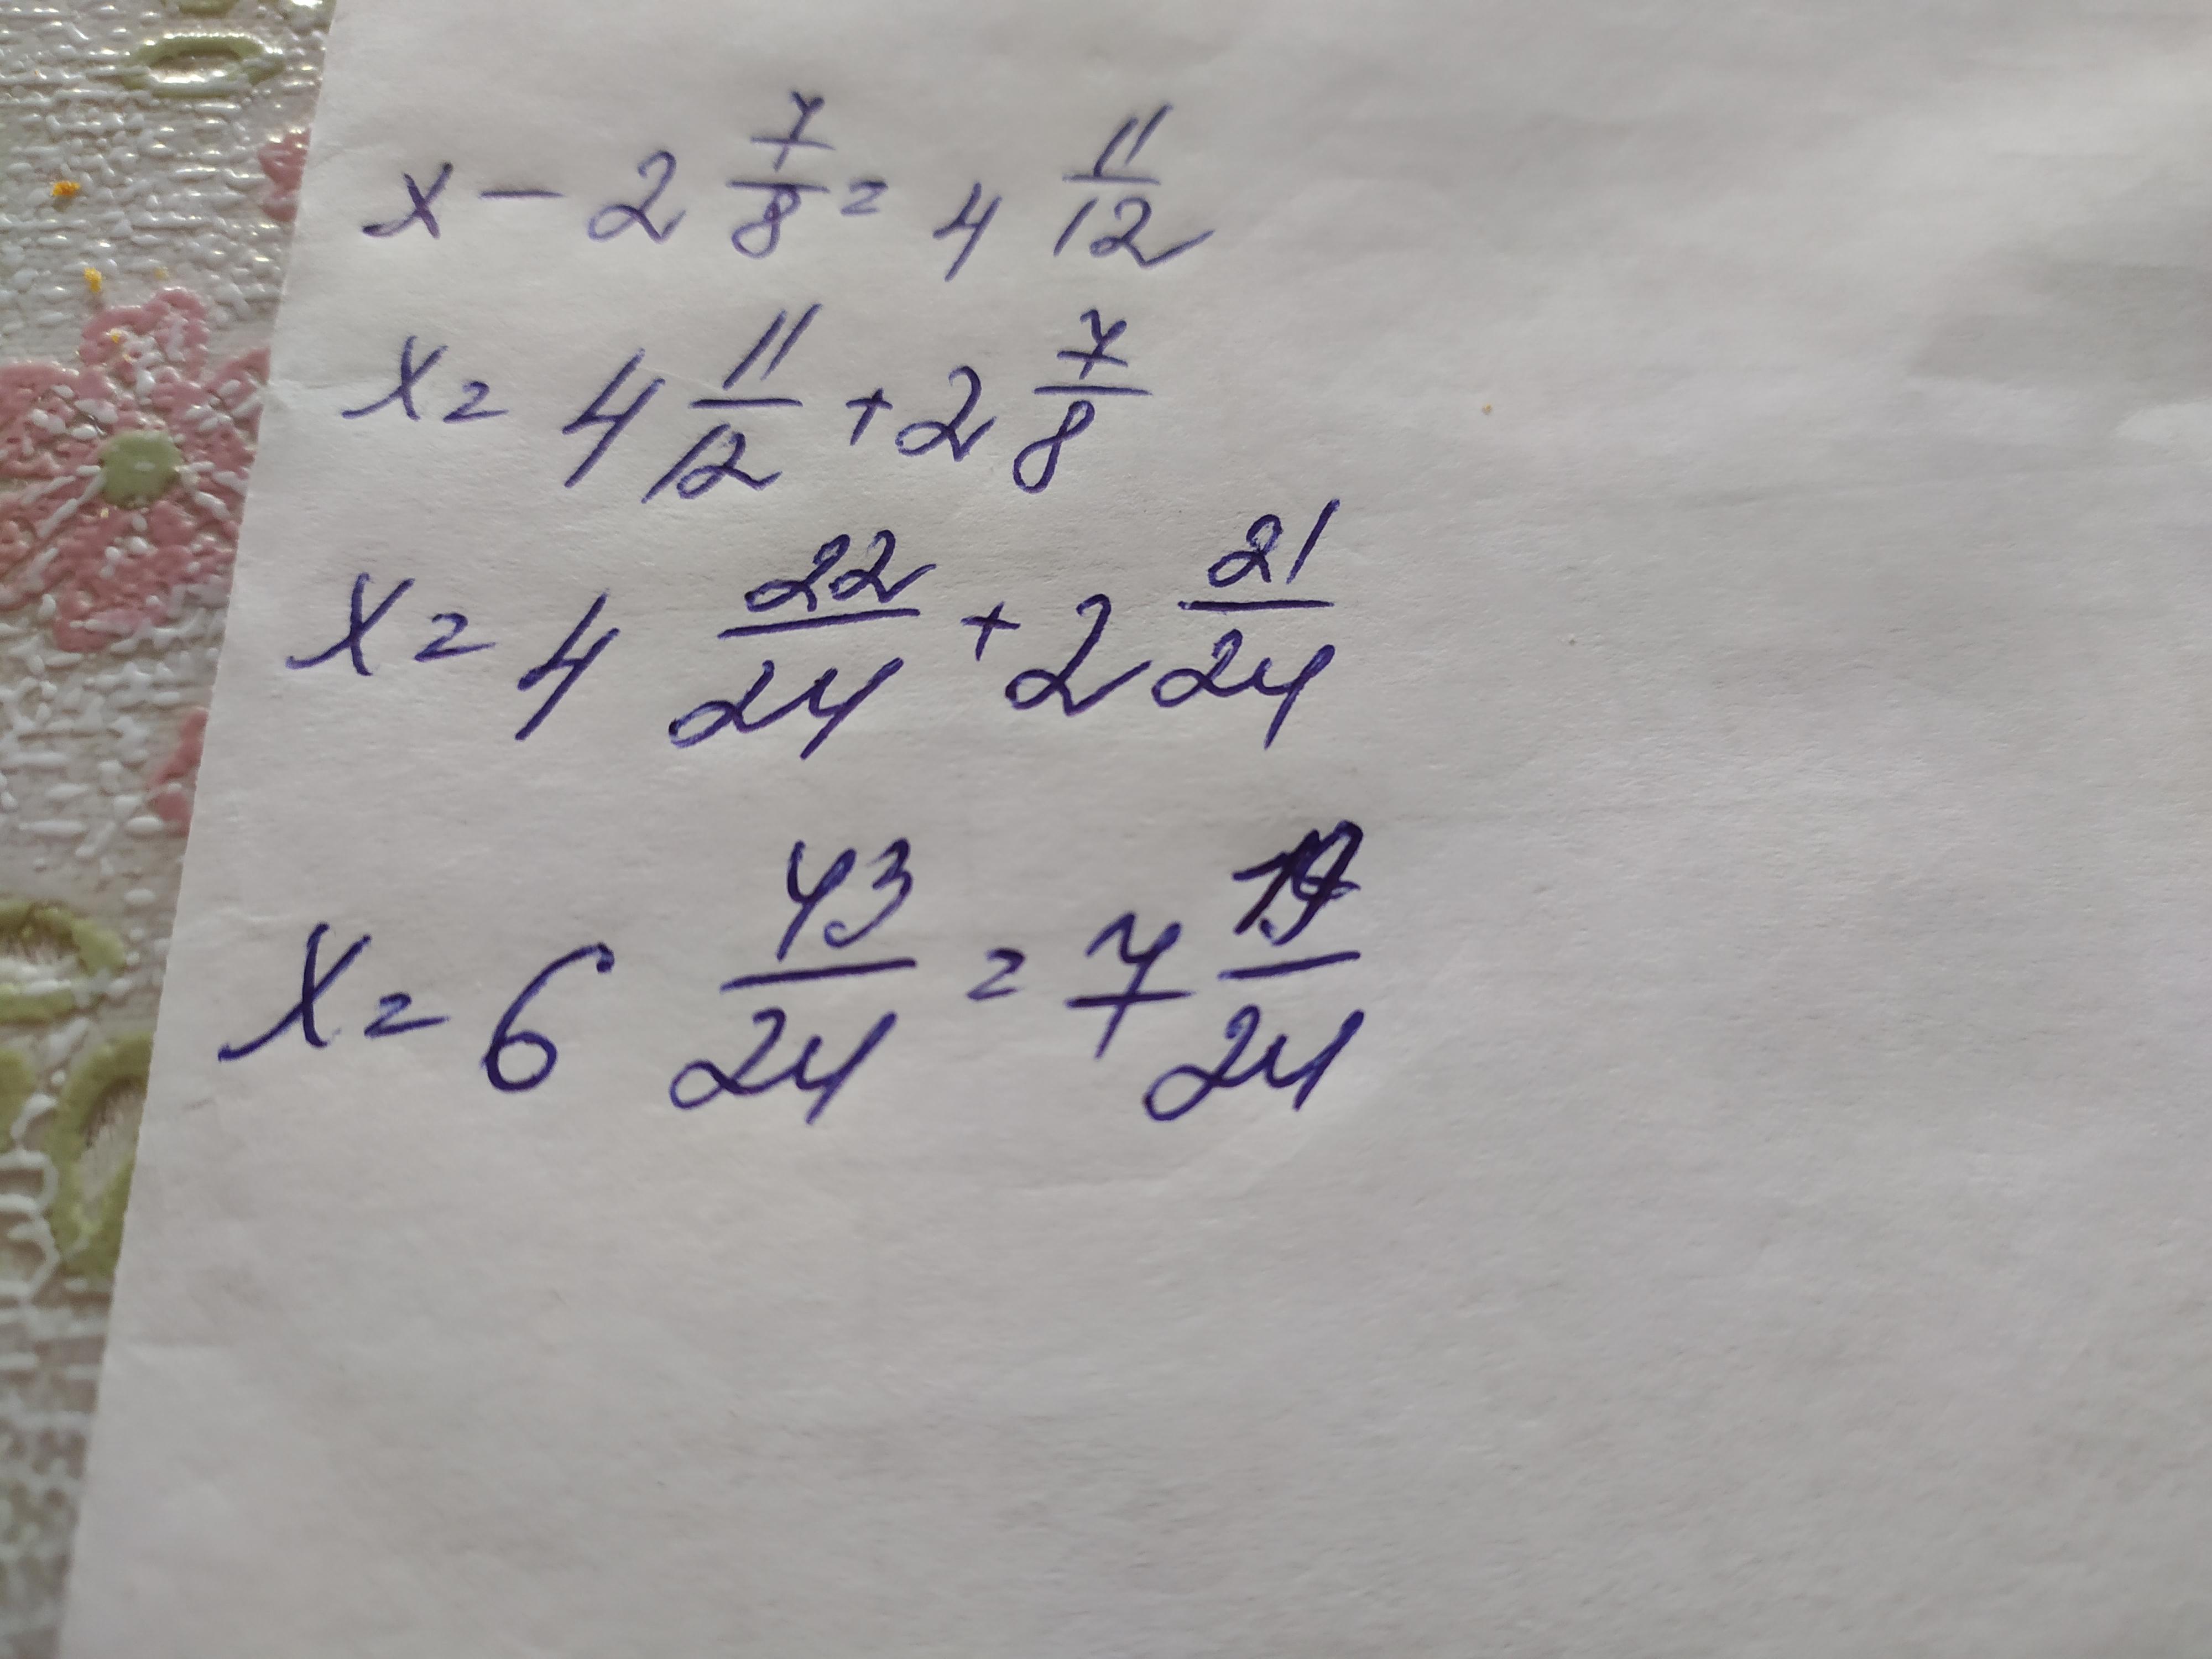 x - 2 7/8 = 4 11/12
x = 4 11/12 + 2 7/8
x = 4 22/24 + 2 21/24
x = 6 43/24 = 7 19/24